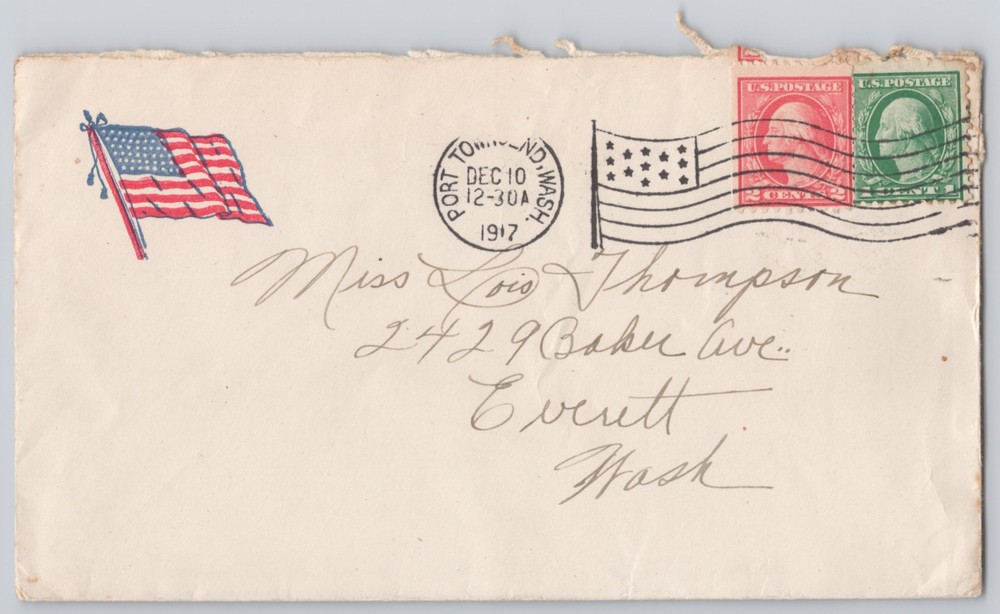 PORT TOWNSEND, WASH.
DEC 10
12-30A
1917
U.S. POSTAGE
2 CENTS 2
U.S. POSTAGE
1 CENT 1
Miss Lois Thompson
2429 Baker Ave..
Everett
Wash